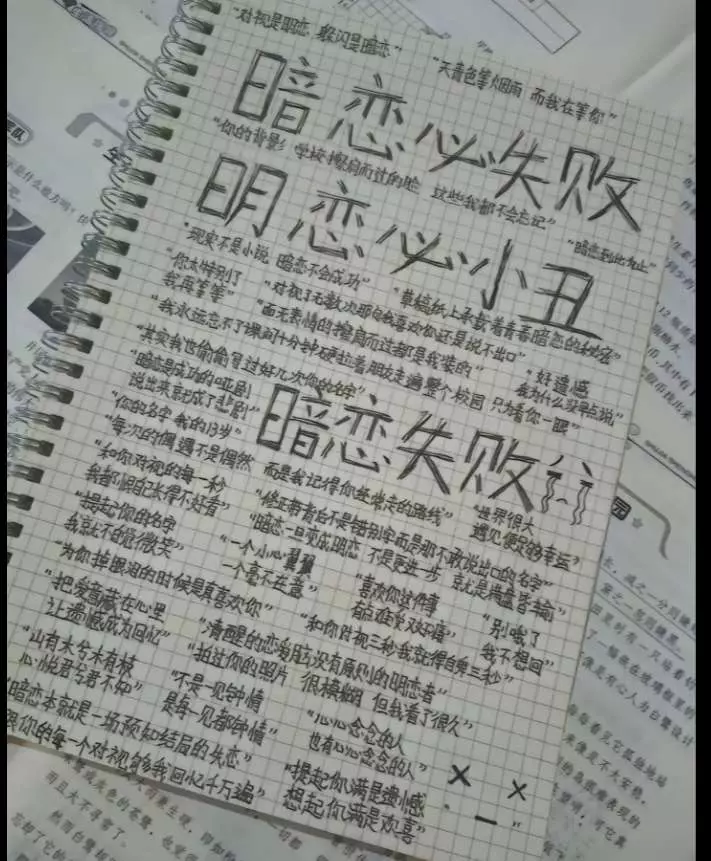 “对视是明恋 躲闪是暗恋”
“天青色等烟雨 而我在等你”
暗恋必失败
“你的背影 学校擦肩而过的脸 这些我都不会忘记”
“暗恋到此为止”
明恋必小丑
“现实不是小说 暗恋不会成功”
“草稿纸上承载着青春暗恋的秘密”
“你太特别了
我再等等”
“对视了无数次那句我喜欢你还是说不出口”
“面无表情的擦肩而过都是我装的”
“好遗憾
我为什么没早点说”
“我永远忘不了课间十分钟硬拉着朋友走遍整个校园 只为看你一眼”
“其实我也偷偷写过好几次你的名字”
“暗恋是成功的哑剧
说出来就成了悲剧”
暗恋失败
“你的名字 我的13岁”
“每次的偶遇不是偶然 而是我记得你经常走的路线”
“世界很大
遇见便足够幸运”
“和你对视的每一秒
我都惧自己长得不好看”
“修正带背后不是错别字而是那不敢说出口的名字”
“提起你的名字
我就不自觉微笑”
“暗恋一旦变成明恋 不是更进一步 就是满盘皆输”
“一个小心翼翼
一个毫不在意”
“喜欢你这件事
有点难受又好哭”
“别哦了
我不想回”
“为你掉眼泪的时候是真喜欢你”
“和你对视三秒 我就得自卑三秒”
“把爱意藏在心里
让遗憾成为回忆”
“清醒的恋爱脑 没有原则的明恋者”
“拍过你的照片 很模糊 但我看了很久”
“山有木兮木有枝
心悦君兮君不知”
“不是一见钟情
是每一见都钟情”
“心心念念的人
也有心心念念的人”
“暗恋本就是一场预知结局的失恋”
跟你的每一个对视够我回忆千万遍”
“提起你满是遗憾
想起你满是欢喜”